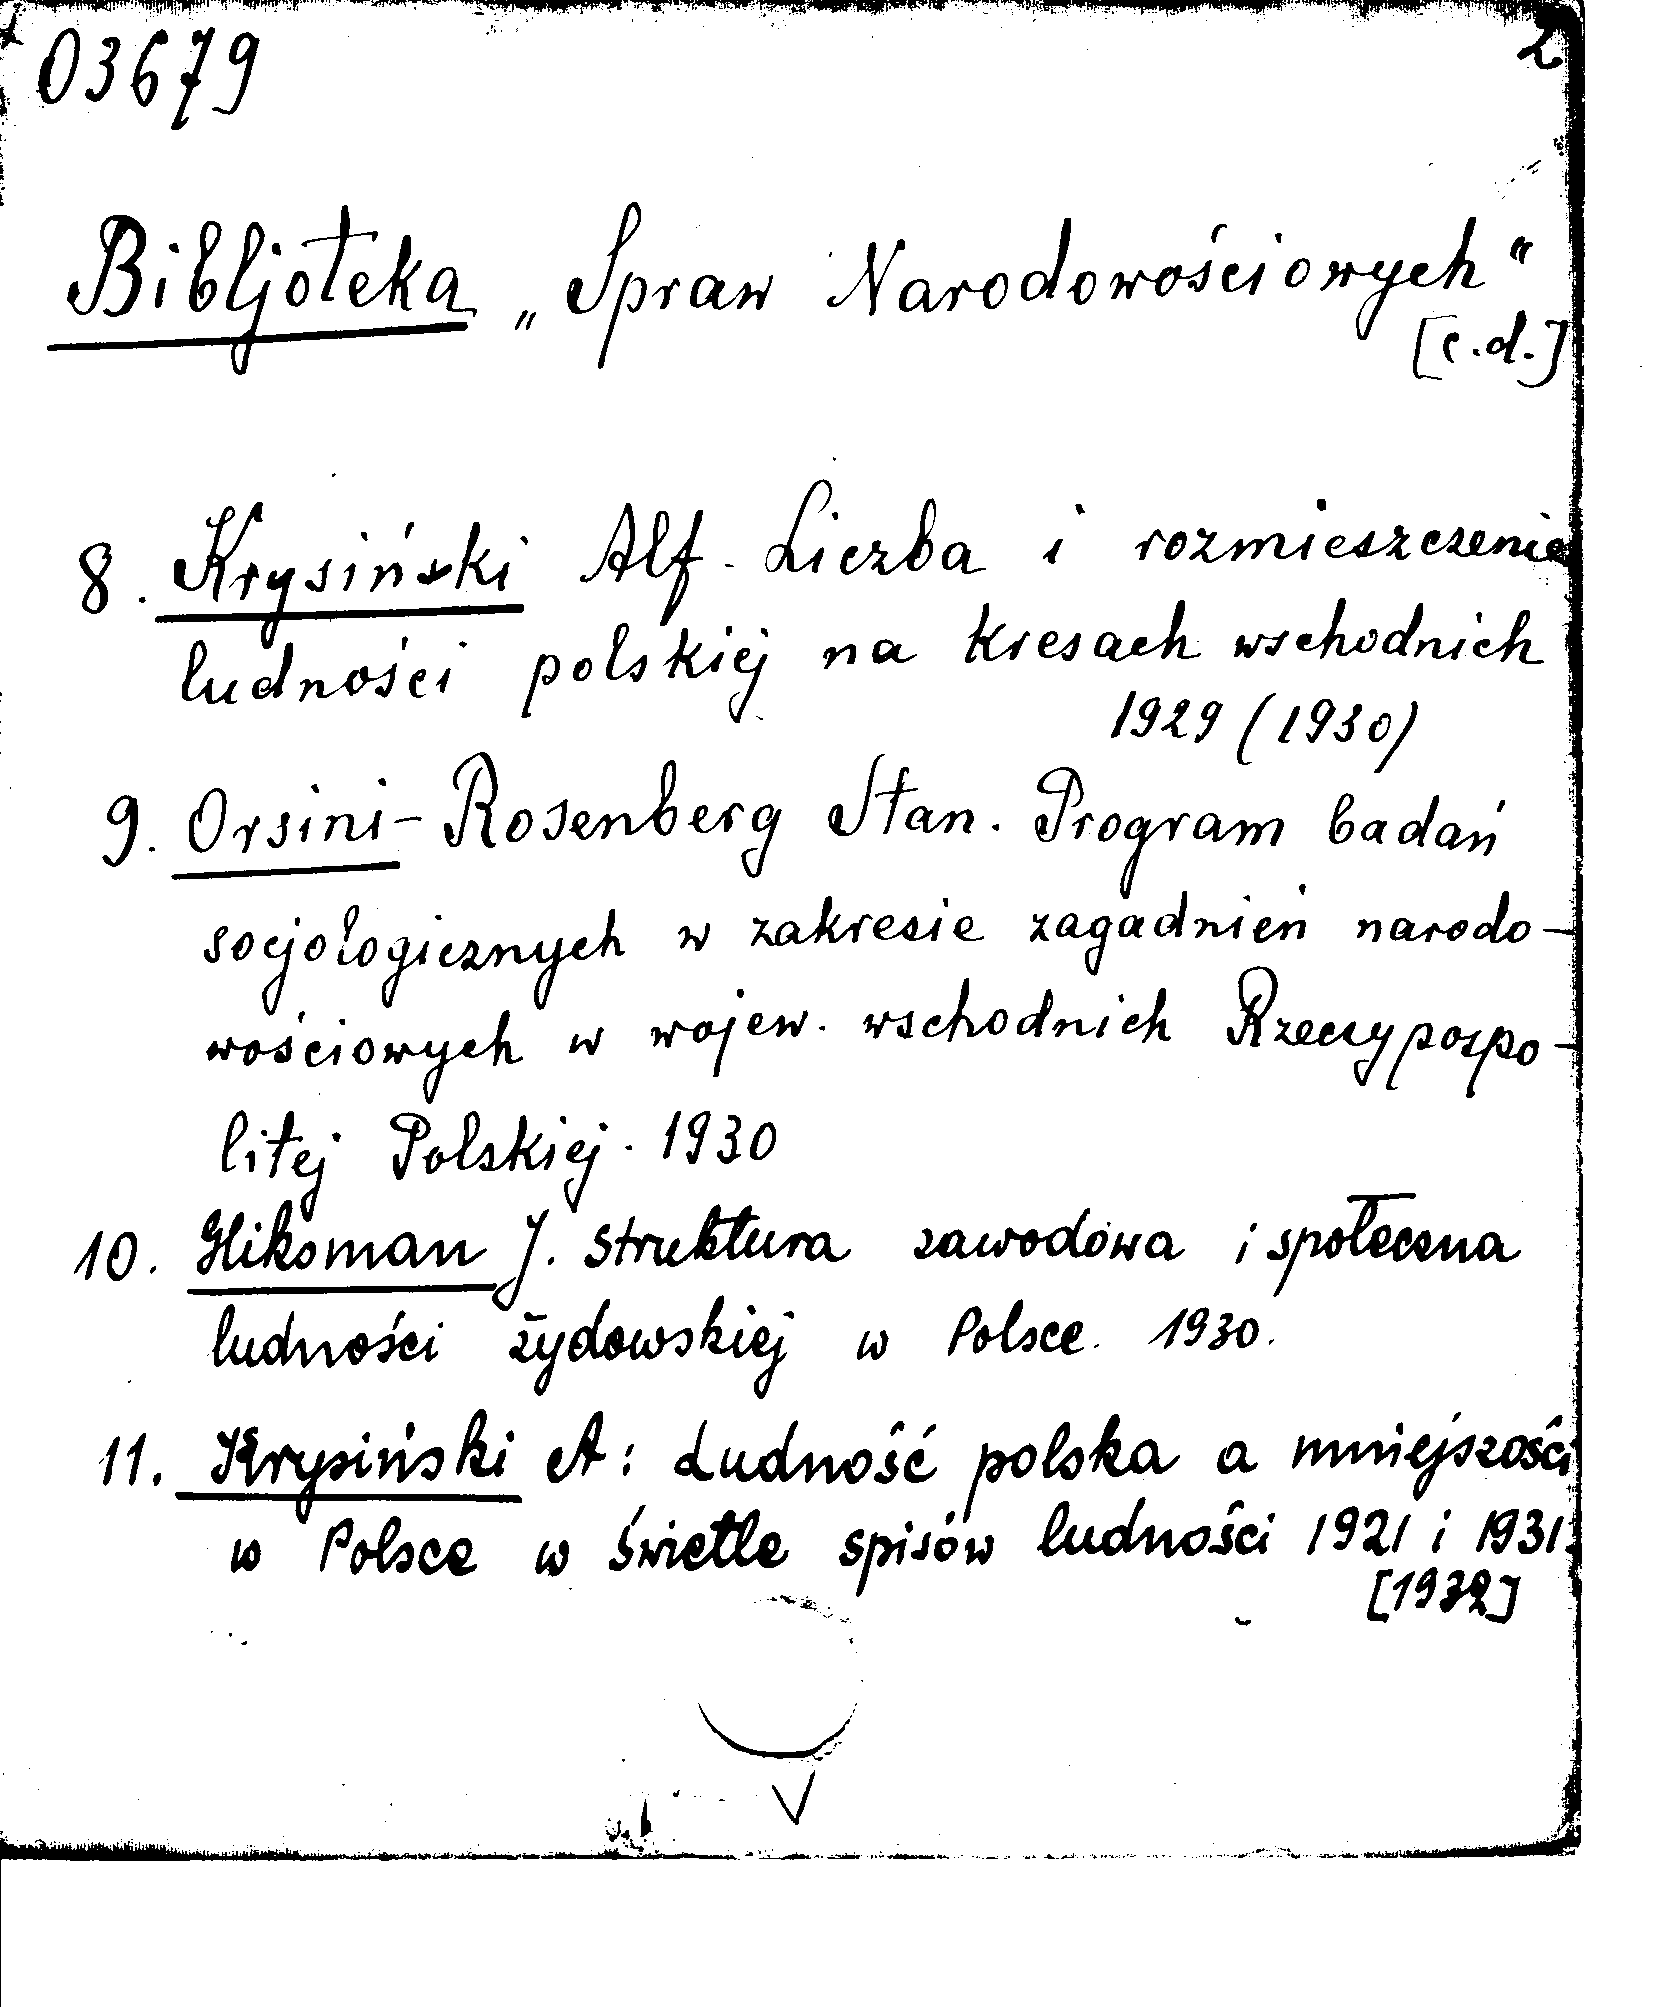 03679
2
Bibljoteka „Spraw Narodowościowych"
[c.d.]
8. Krysiński Alf. Liczba i rozmieszczenie
ludności polskiej na kresach wschodnich
1929 (1930)
9. Orsini-Rosenberg Stan. Program badań
socjologicznych w zakresie zagadnień narodo-
wościowych w wojew. wschodnich Rzeczypospo-
litej Polskiej. 1930
10. Gliksman J. Struktura zawodowa i społeczna
ludności żydowskiej w Polsce. 1930.
11. Krysiński A: Ludność polska a mniejszości
w Polsce w świetle spisów ludności 1921 i 1931.
[1932]